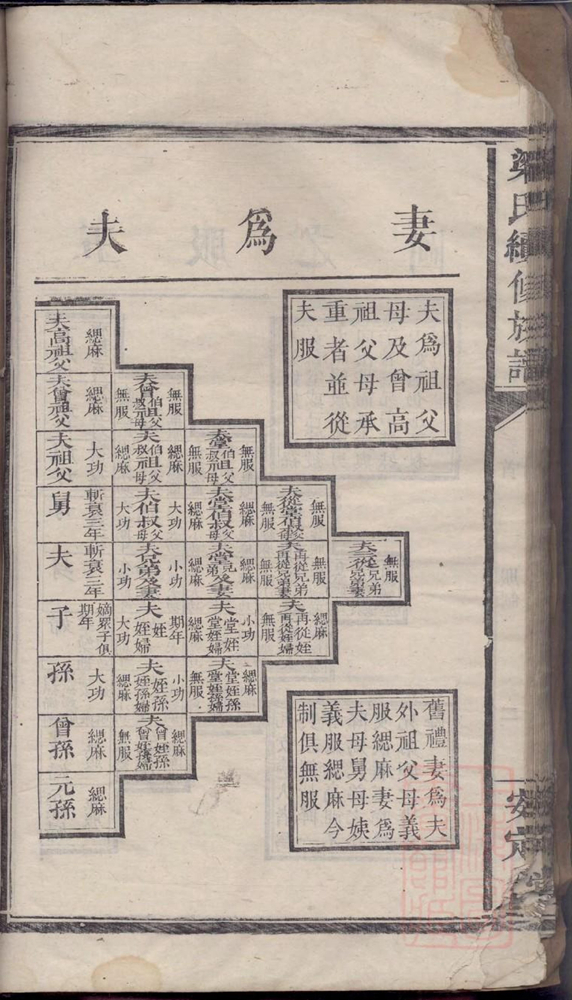 梁氏續修族譜
安定
妻爲夫
夫爲祖父
母及曾高
祖父母承
重者並從
夫服
夫高祖父 緦麻
夫曾祖父 緦麻
夫曾伯叔祖父母 無服 無服
夫祖父 大功
夫伯叔祖父母 緦麻 緦麻
夫堂伯叔祖父母 無服 無服
舅 斬衰三年
夫伯叔父母 大功 大功
夫堂伯叔父母 緦麻 緦麻
夫從堂伯叔父母 無服 無服
夫 斬衰三年
夫兄弟及妻 小功 小功
夫堂兄弟及妻 緦麻 緦麻
夫再從兄弟 夫再從兄弟妻 無服 無服
夫三從兄弟 無服
子 嫡眾子俱期年
夫姪 期年
夫姪婦 大功
夫堂姪 小功
夫堂姪婦 緦麻
夫再從姪 緦麻
夫再從姪婦 無服
孫 大功
夫姪孫 小功
夫姪孫婦 緦麻
夫堂姪孫 緦麻
夫堂姪孫婦 無服
曾孫 緦麻
夫曾姪孫 緦麻
夫曾姪孫婦 無服
元孫 緦麻
舊禮妻爲夫
外祖父母義
服緦麻妻爲
夫母舅母姨
義服緦麻今
制俱無服